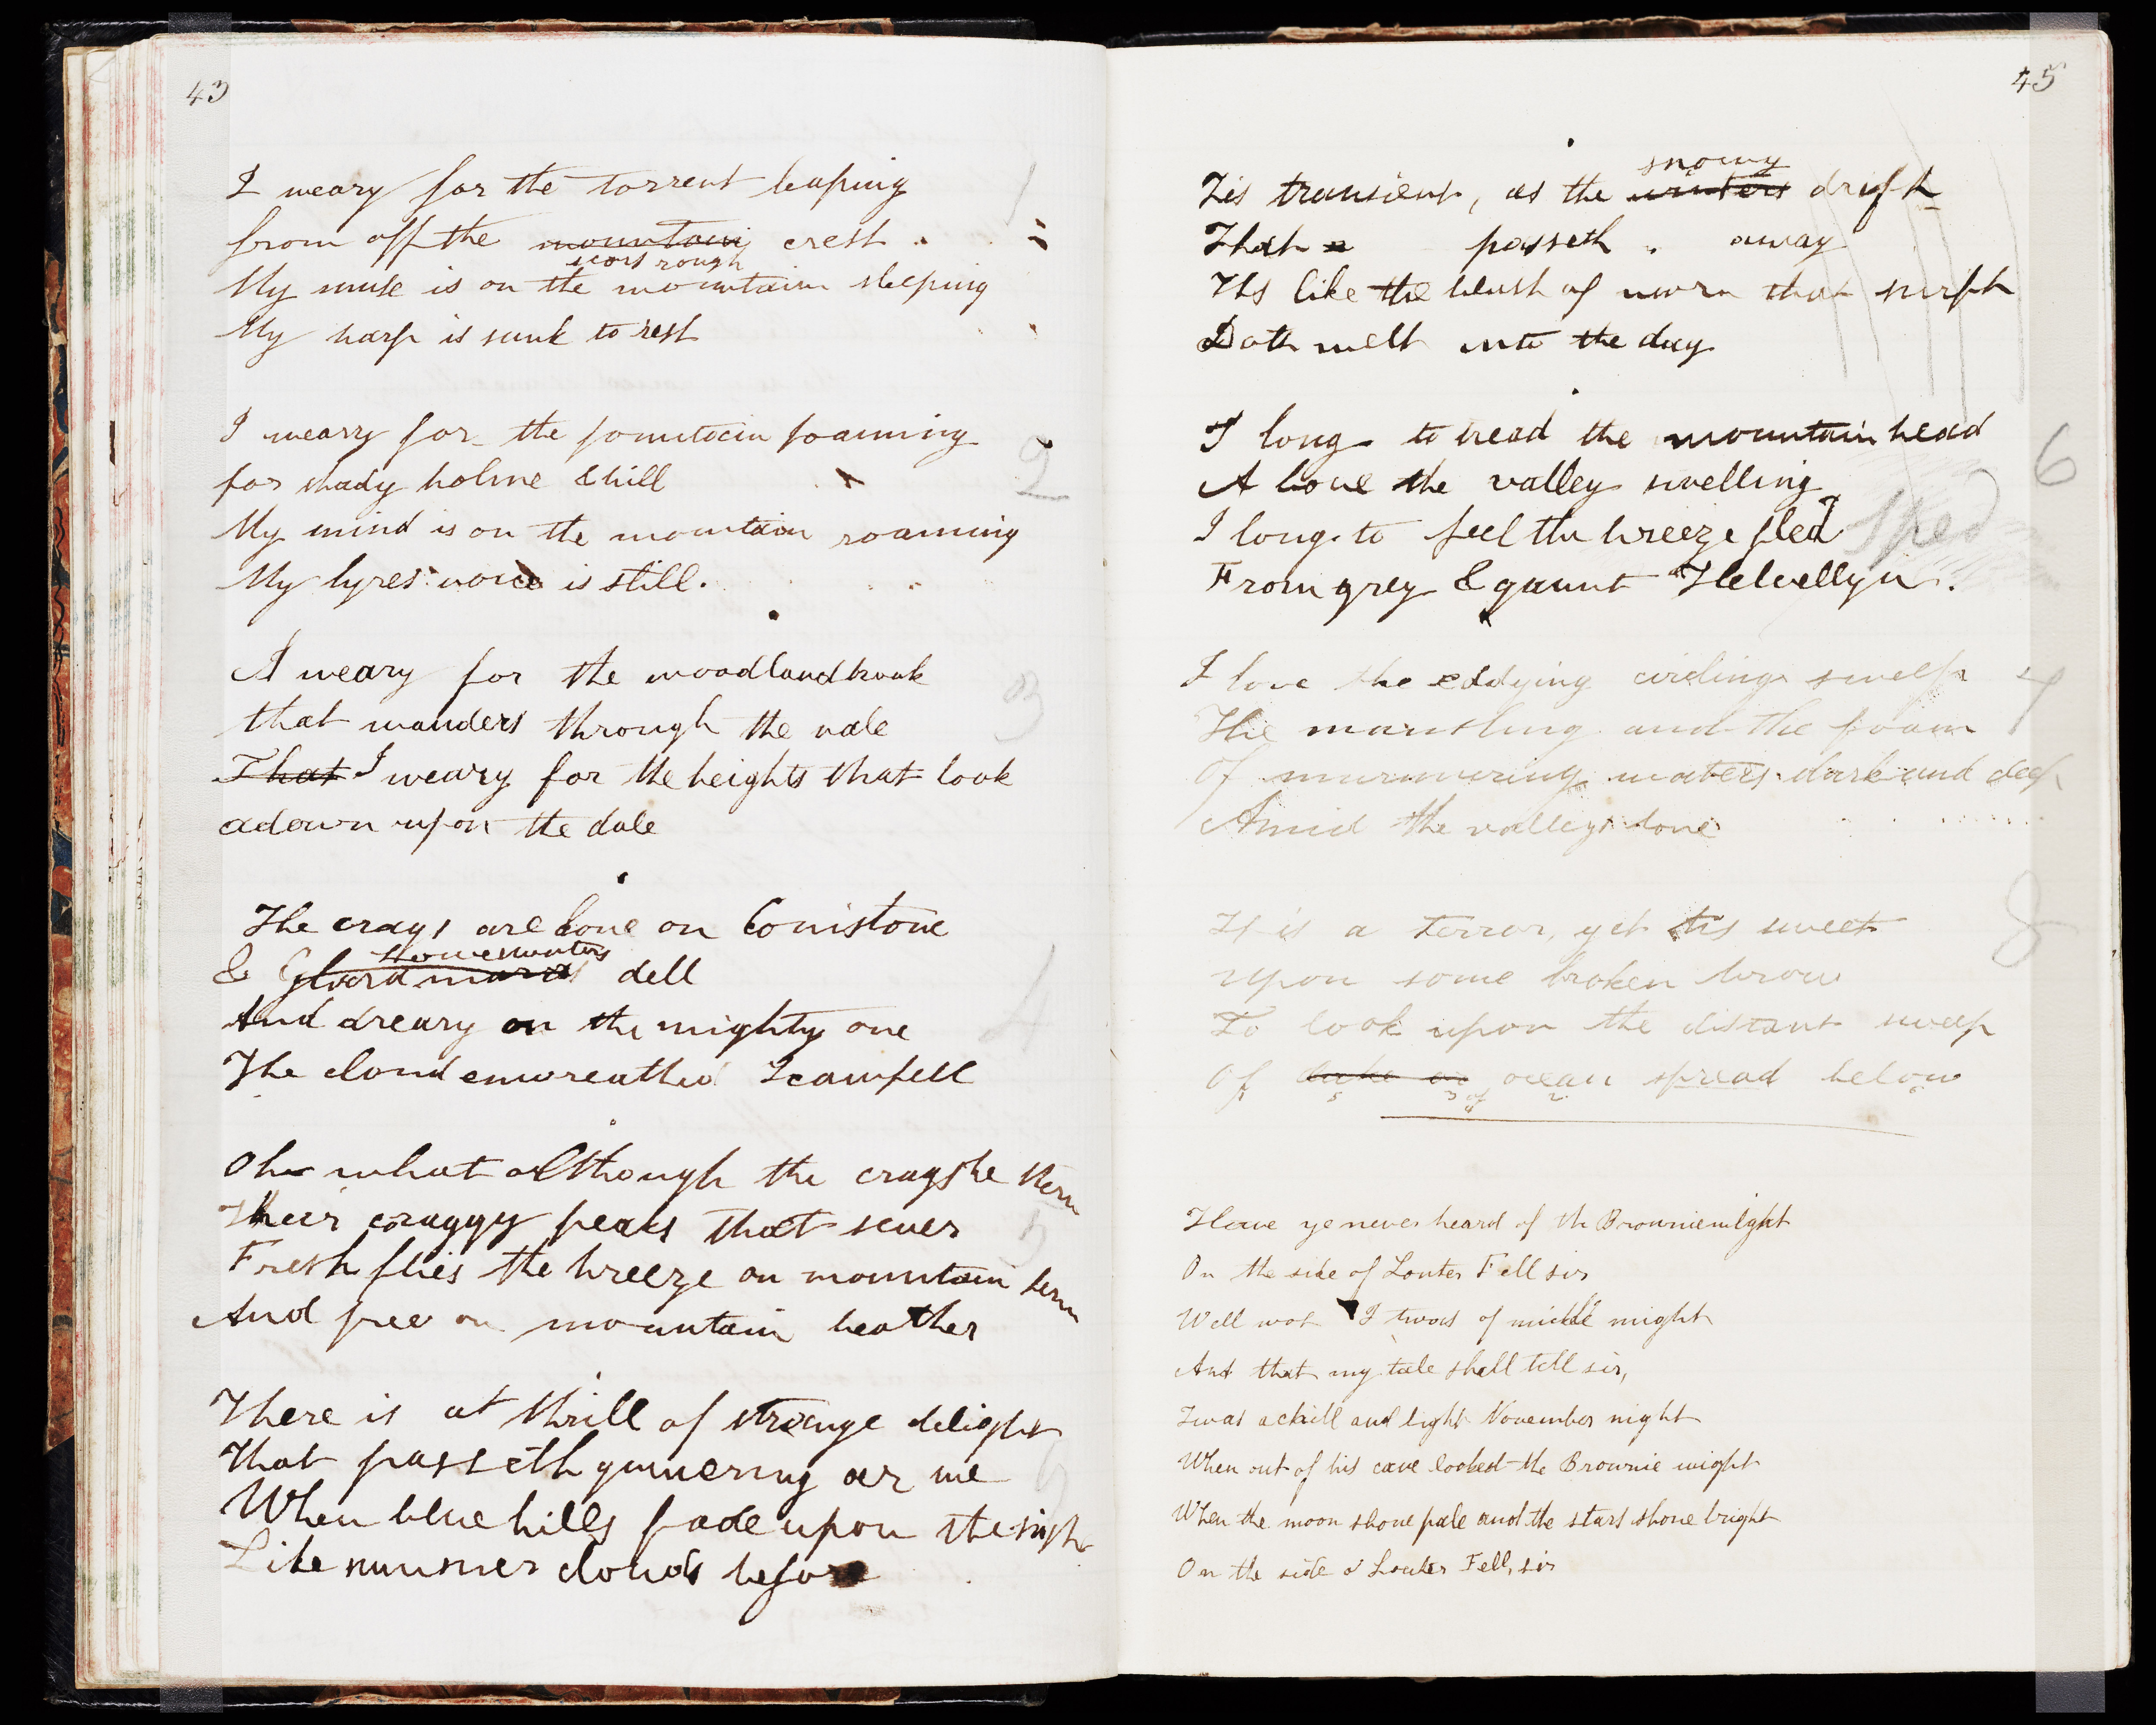 43
I weary for the torrent leaping 1
from off the mountains crest.
scars rough
My muse is on the mountain sleeping
My harp is sunk to rest
I weary for the fountain foaming
for shady holme & hill 2
My mind is on the mountain roaming
My lyres voice is still.
I weary for the woodland brook
that wanders through the vale 3
That I weary for the heights that look
adown upon the dale
The crags are lone on Conistone
Loweswaters
& Glaramaras dell
And dreary on the mighty one 4
The cloud enwreathed Scawfell
Oh what although the crags be stern
Their craggy peaks that sever 5
Fresh flies the breeze on mountain fern
And free on mountain heather
There is at thrill of strange delight
That passeth quivering oer me 6
When blue hills fade upon the sight
Like summer clouds before
45
snowy
Tis transient, as the winters drift
That a passeth . away
Its like the blush of morn that swift
Doth melt into the day
I long to tread the mountain head
Above the valley swelling 6
I long to feel the breeze fled sped
From grey & gaunt Helvellyn.
I love the eddying circling sweep 7
The mantling and the foam
Of murmuring waters dark and deep
Amid the valleys lone
It is a terror, yet tis sweet 8
Upon some broken brow
To look upon the distant sweep
Of lake or ocean spread below
of
Have ye never heard of th Brownie wight
On the side of Louter Fell sir
Well wot I twas of mickle might
And that my tale shall tell sir,
Twas a chill and light November night
When out of his cave looked the Brownie wight
When the moon shone pale and the stars shone bright
On the side o Louter Fell, sir